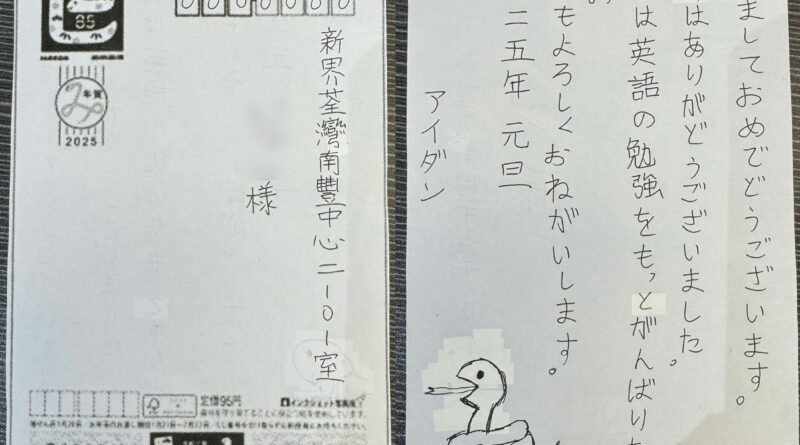 85
0000000
年賀
2025
新界荃灣南豐中心二一〇一室
様
定価95円
インクジェット写真用
ましておめでどうございます。
はありがどうございました。
は英語の勉強をもっとがんばりた
もよろしくおねがいします。
二五年 元旦
アイダン